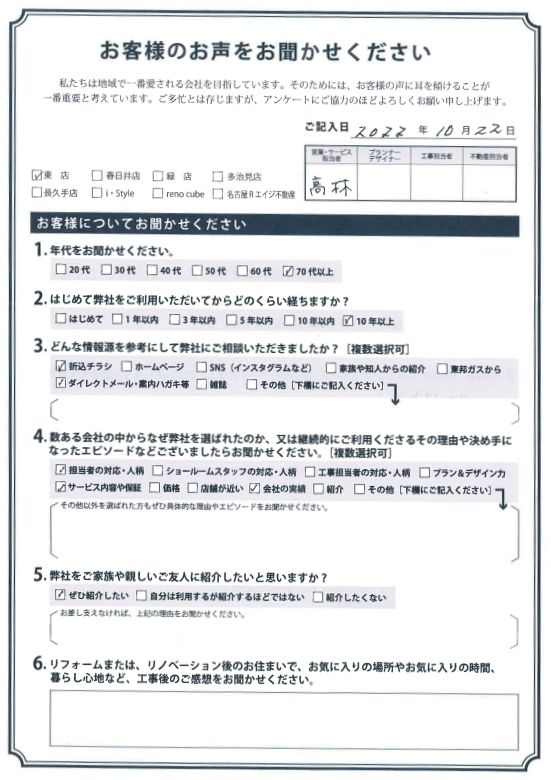 お客様のお声をお聞かせください
私たちは地域で一番愛される会社を目指しています。そのためには、お客様の声に耳を傾けることが
一番重要と考えています。ご多忙とは存じますが、アンケートにご協力のほどよろしくお願い申し上げます。
ご記入日 2022 年 10 月 22 日
営業・サービス担当者 プランナーデザイナー 工事担当者 不動産担当者
高林
☑東 店 □春日井店 □緑 店 □多治見店
□長久手店 □i・Style □reno cube □名古屋Rエイジ不動産
お客様についてお聞かせください
1. 年代をお聞かせください。
□20代 □30代 □40代 □50代 □60代 ☑70代以上
2. はじめて弊社をご利用いただいてからどのくらい経ちますか？
□はじめて □1年以内 □3年以内 □5年以内 □10年以内 ☑10年以上
3. どんな情報源を参考にして弊社にご相談いただきましたか？［複数選択可］
☑折込チラシ □ホームページ □SNS（インスタグラムなど） □家族や知人からの紹介 □東邦ガスから
☑ダイレクトメール・案内ハガキ等 □雑誌 □その他［下欄にご記入ください］
4. 数ある会社の中からなぜ弊社を選ばれたのか、又は継続的にご利用くださるその理由や決め手に
なったエピソードなどございましたらお聞かせください。［複数選択可］
☑担当者の対応・人柄 □ショールームスタッフの対応・人柄 □工事担当者の対応・人柄 □プラン＆デザイン力
☑サービス内容や保証 □価格 □店舗が近い ☑会社の実績 □紹介 □その他［下欄にご記入ください］
その他以外を選ばれた方もぜひ具体的な理由やエピソードをお聞かせください。
5. 弊社をご家族や親しいご友人に紹介したいと思いますか？
☑ぜひ紹介したい □自分は利用するが紹介するほどではない □紹介したくない
お差し支えなければ、上記の理由をお聞かせください。
6. リフォームまたは、リノベーション後のお住まいで、お気に入りの場所やお気に入りの時間、
暮らし心地など、工事後のご感想をお聞かせください。